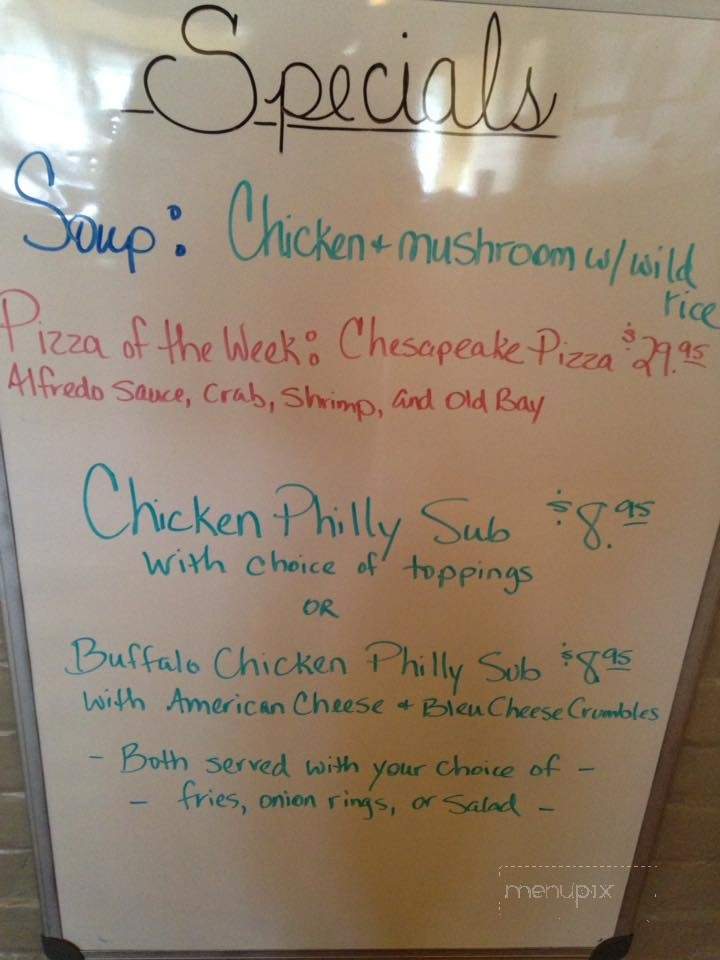 Specials
Soup: Chicken + mushroom w/ wild
rice
Pizza of the Week: Chesapeake Pizza $29.95
Alfredo Sauce, Crab, Shrimp, and Old Bay
Chicken Philly Sub $8.95
with choice of toppings
OR
Buffalo Chicken Philly Sub $8.95
with American Cheese + Bleu Cheese Crumbles
- Both served with your choice of -
- fries, onion rings, or salad -
menupix